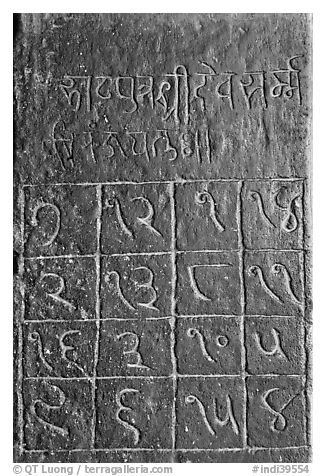 पुत्रश्रीदेवसर्म्म
७ १२ १ १४
२ १३ ८ ११
१६ ३ १० ५
९ ६ १५ ४
© QT Luong / terragalleria.com #indi39554